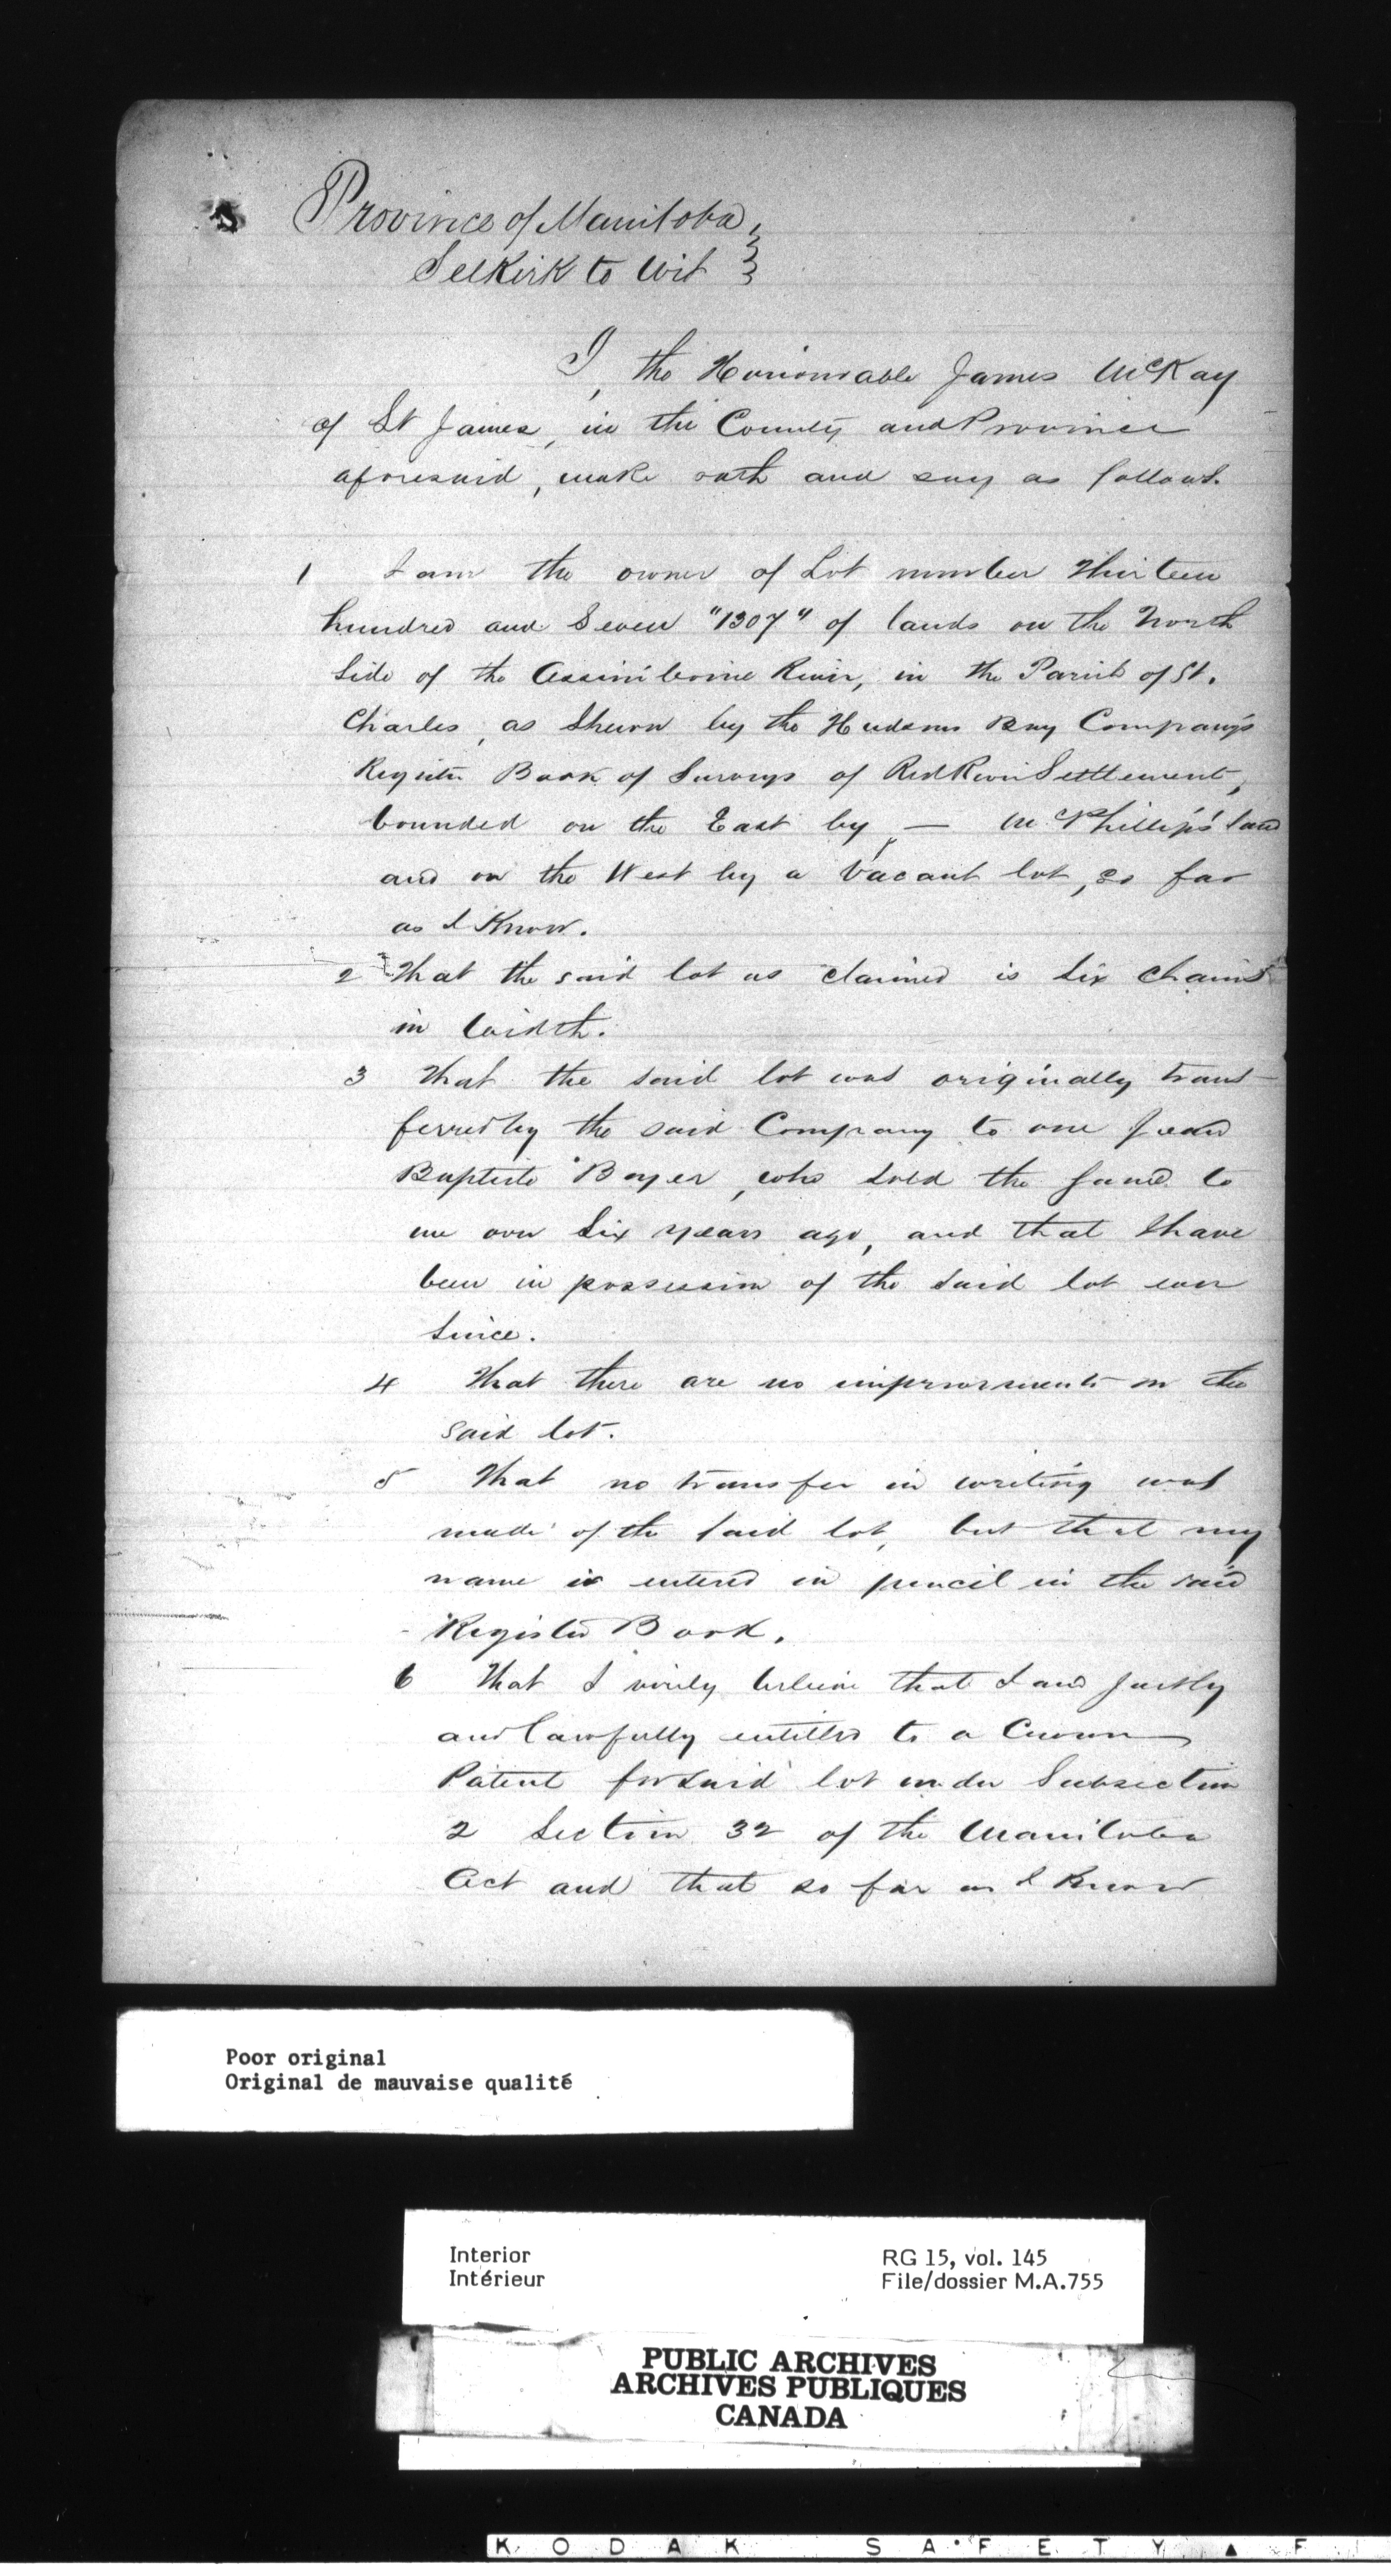 Province of Manitoba
Selkirk to Wit
I, the Honourable James McKay
of St James, in the County and Province
aforesaid, make oath and say as follows.
1 I am the owner of Lot number Thirteen
hundred and Seven "1307" of lands on the North
Side of the Assiniboine River, in the Parish of St.
Charles, as Shewn by the Hudsons Bay Company's
Register Book of Surveys of Red River Settlement,
bounded on the East by — McPhillips' land
and on the West by a Vacant lot, so far
as I Know.
2 That the said lot as claimed is Six Chains
in Width.
3 That the said lot was originally trans-
ferred by the said Company to one Jean
Baptiste Boyer, who sold the same to
me over Six years ago, and that I have
been in possession of the said lot ever
Since.
4 That there are no improvements on the
said lot.
5 That no transfer in writing was
made of the said lot, but that my
name is entered in pencil in the said
Register Book.
6 That I verily believe that I am justly
and lawfully entitled to a Crown
Patent for said lot under Subsection
2 Section 32 of the Manitoba
Act and that so far as I Know
Poor original
Original de mauvaise qualité
Interior
Intérieur
RG 15, vol. 145
File/dossier M.A.755
PUBLIC ARCHIVES
ARCHIVES PUBLIQUES
CANADA
KODAK SAFETY ▲ F